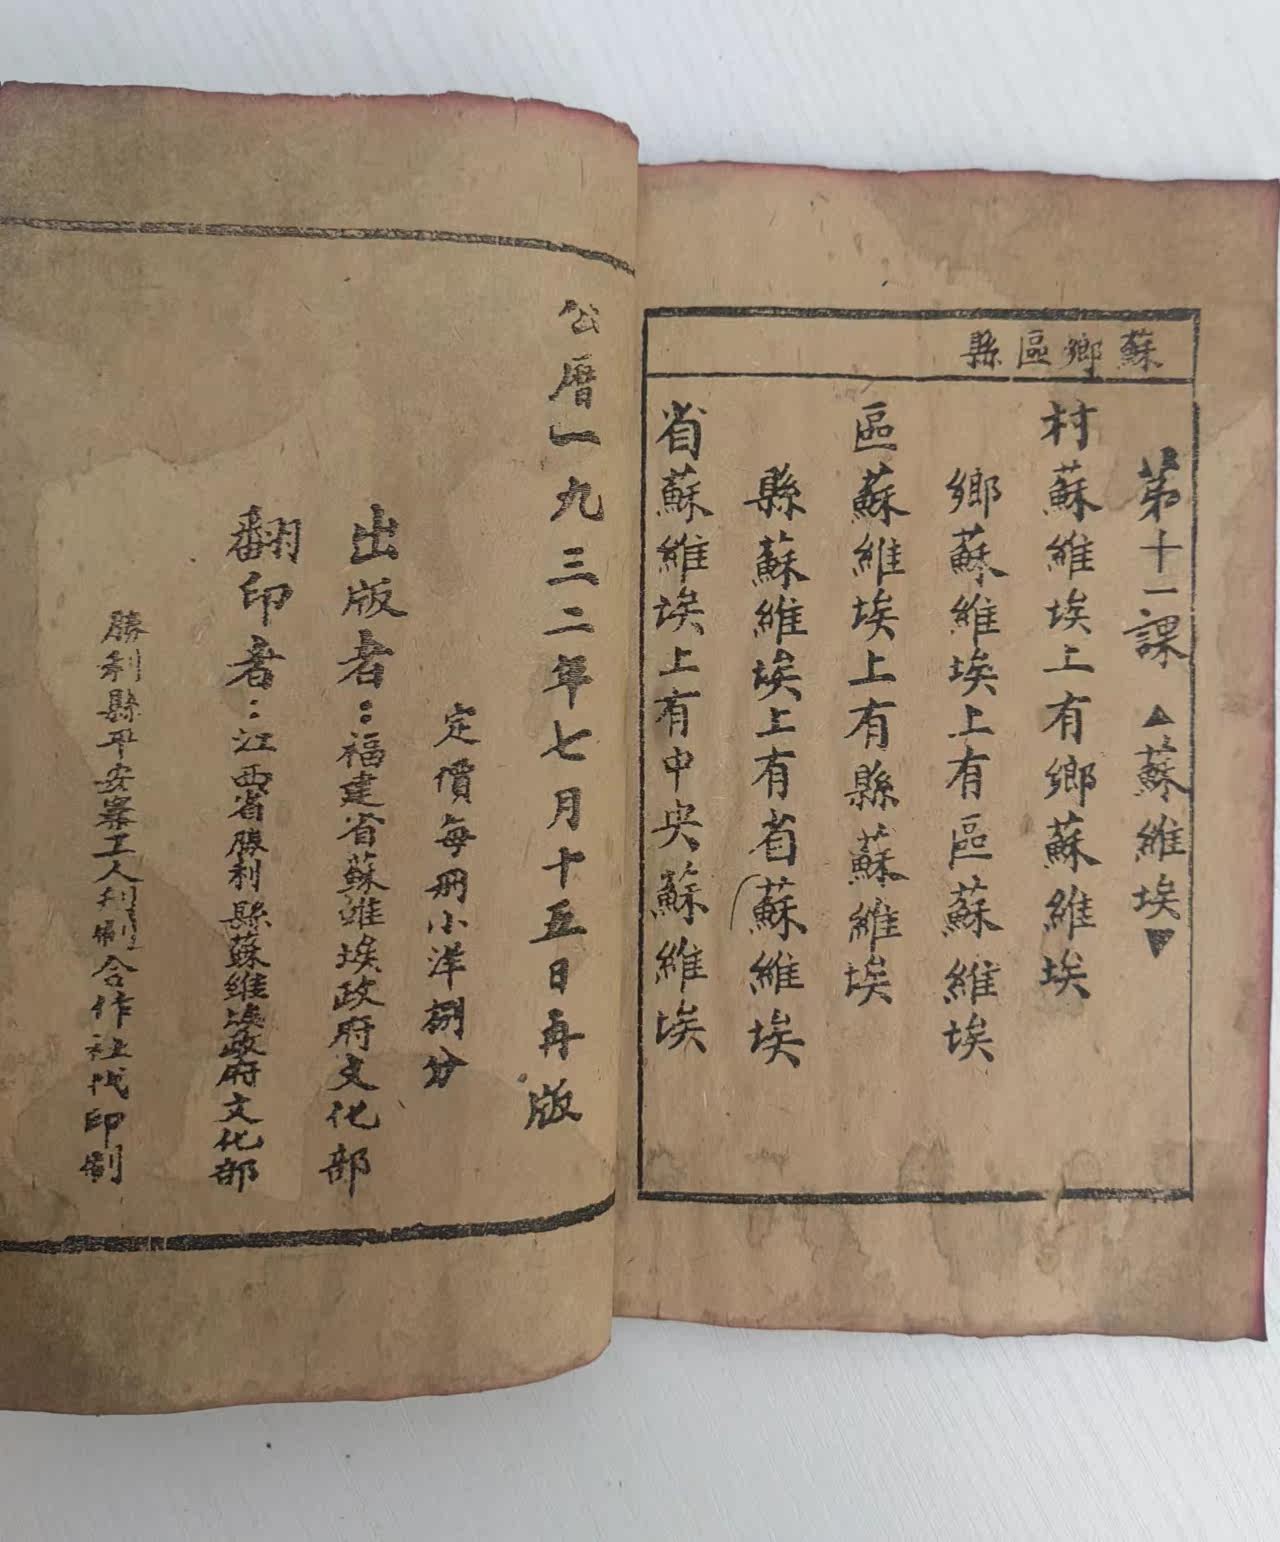 蘇鄉區縣
第十一課 ▲蘇維埃▼
村蘇維埃上有鄉蘇維埃
鄉蘇維埃上有區蘇維埃
區蘇維埃上有縣蘇維埃
縣蘇維埃上有省蘇維埃
省蘇維埃上有中央蘇維埃
公曆一九三二年七月十五日再版
定價每册小洋捌分
出版者：福建省蘇維埃政府文化部
翻印者：江西省勝利縣蘇維埃政府文化部
勝利縣平安寨工人刷合作社代印刷